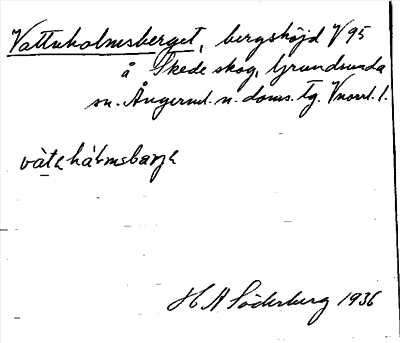 Vattuholmsberget, bergshöjd V 95
å Skede skog, Grundsunda
sn. Ångerml. n. doms. tg. Vnorrl. l.
vàtəhȧ́ɫmsbærjə
H A Söderberg 1936